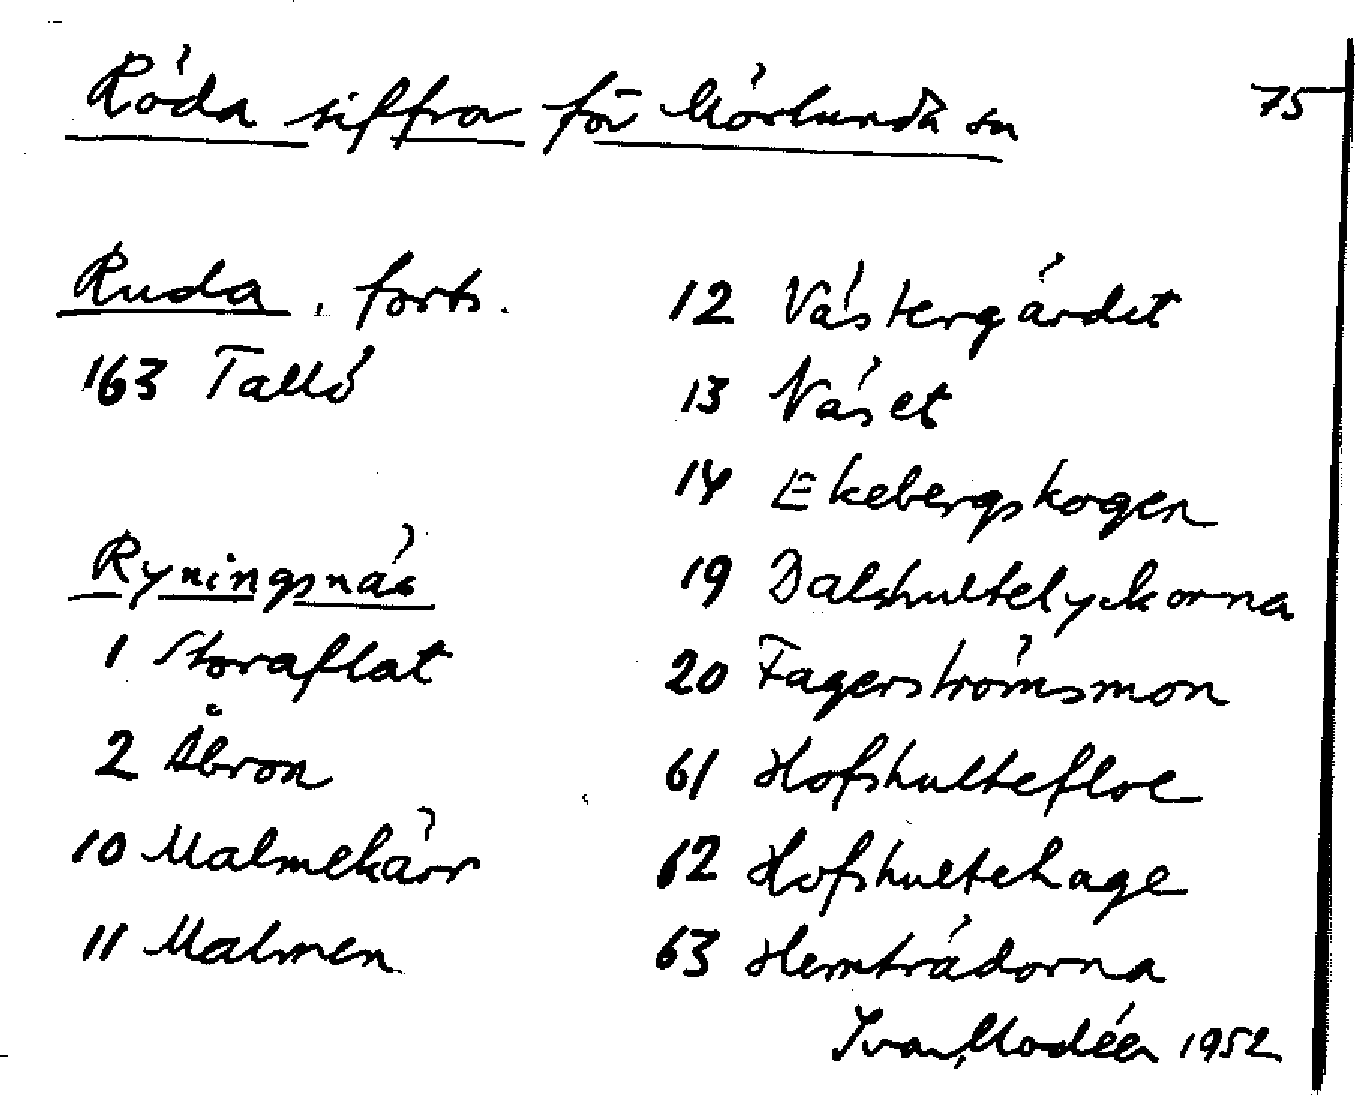 Röda siffror för Mörlunda sn
75
Ruda, forts.
163 Tallö
Ryningsnäs
1 Storaflat
2 Åbron
10 Malmekärr
11 Malmen
12 Västergärdet
13 Väset
14 Ekebergskogen
19 Dalshultelyckorna
20 Fagerströmsmon
61 Hofshultefloe
62 Hofshultehage
63 Hemträdorna
Ivar Modéer 1952